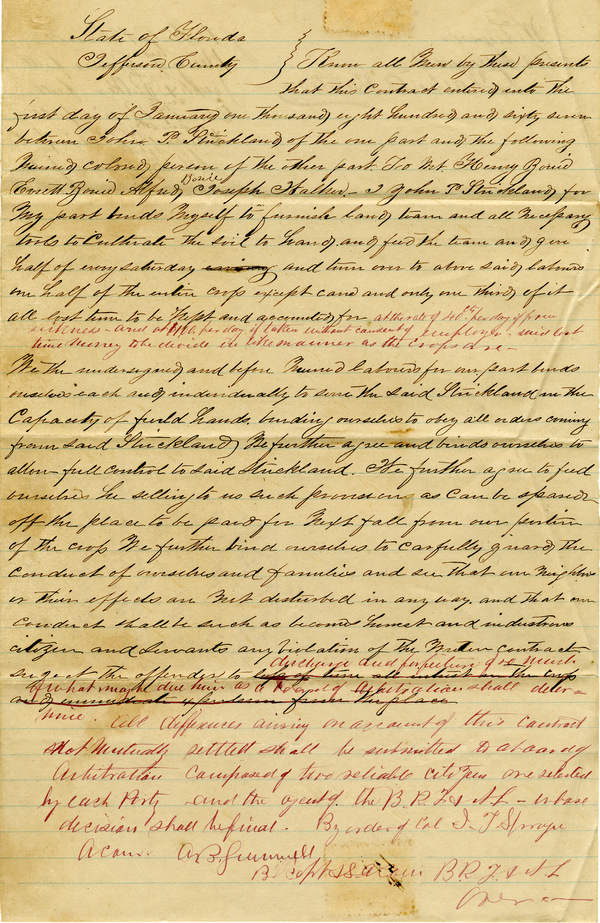 State of Florida
Jefferson County } Know all Men by these presents
that this Contract entered into the
first day of January one thousand eight hundred and sixty seven
between John P. Strickland of the one part and the following
Named colored person of the other part. To wit. Henry
Alfred, Joseph Walker. I John P Strickland, for
My part binds Myself to furnish land, team and all Necessary
tools to Cultivate the soil to hand and feed the team and give
half of every saturday and turn over to above said labours
one half of the entire crop except cane and only one third of it
all lost time to be kept and accounted for at the rate of 40cts per day if from
sickness and at per day if taken without consent of employer. said lost
time money to be divide in like manner as the crops are
We the undersigned and before Named labours for our part binds
ourselves each and individually to serve the said Strickland in the
Capacity of field hands. binding ourselves to obey all orders coming
from said Strickland, We further agree and binds ourselves to
allow full control to said Strickland. We further agree to feed
ourselves he selling to us such provisions as can be spared
off the place to be paid for Next fall from our portion
of the crop We further bind ourselves to carfully guard the
conduct of ourselves and families and see that our Neighbors
or their effects are Not disturbed in any way. and that our
conduct shall be such as becomes honest and industrous
citizen and servants any violation of the Written contract
discharge and forfeiture of so much
subject the offender to
of what may be due him as a Board of Arbitration shall deter=
and immediate expulsion from the place
mine. All differences arising on account of this contract
Not Mutually settled shall be submitted to a board of
Arbitration composed of two reliable citizen one selected
by each Party and the agent of the B.R.F. & A.L - whose
decision shall be final. By order of Col J. T. Sprague
A Com. A.B. Grumwell
Bt Capt B.R.F. & A L
Over